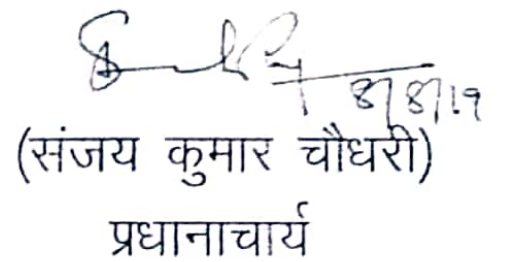 8/8/19
(संजय कुमार चौधरी)
प्रधानाचार्य